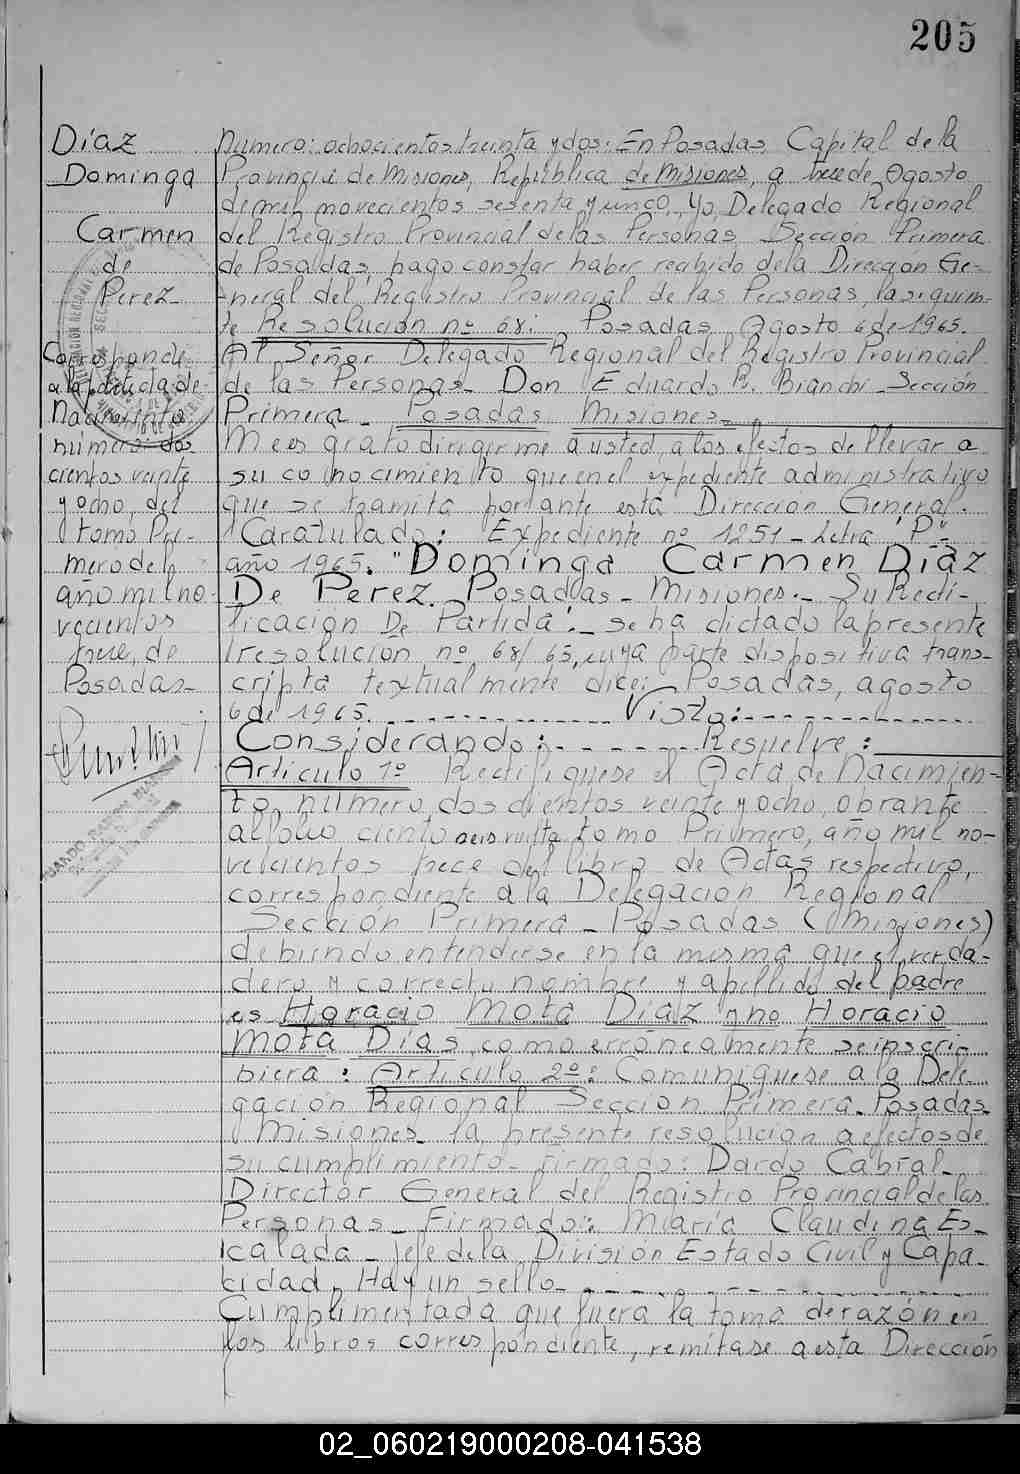 205
Díaz
Dominga
Carmen
de
Perez
Corresponde
a la partida de
Nacimiento
número: dos
cientos veinte
y ocho, del
tomo Pri-
mero del
año mil no-
vecientos
trece, de
Posadas-
Numero: ochocientos treinta y dos: En Posadas, Capital de la
Provincia de Misiones, República de Misiones, a trece de Agosto
de mil novecientos sesenta y cinco, Yo, Delegado Regional
del Registro Provincial de las Personas, Sección Primera
de Posadas, hago constar haber recibido de la Dirección Ge-
neral del Registro Provincial de las Personas, la siguien-
te Resolución nº 68: Posadas, Agosto 6 de 1965.
Al Señor Delegado Regional del Registro Provincial
de las Personas- Don Eduardo R. Bianchi- Sección
Primera- Posadas Misiones-
Me es grato dirigirme a usted, a los efectos de llevar a
su conocimiento que en el expediente administrativo
que se tramita por ante esta Dirección General.
Caratulado: "Expediente nº 1251- Letra "P"-
año 1965. "Dominga Carmen Díaz
De Perez. Posadas- Misiones.- Su Recti-
ficación De Partida".- se ha dictado la presente
resolución nº 68/65, cuya parte dispositiva trans-
cripta textualmente dice: Posadas, agosto
6 de 1965. Visto:
Considerando: Resuelve:
Artículo 1º Rectifiquese el Acta de Nacimien-
to, número dos cientos veinte y ocho, obrante
al folio ciento seis vuelta tomo Primero, año mil no-
vecientos trece del libro de Actas respectivo,
correspondiente a la Delegación Regional
Sección Primera- Posadas (Misiones)
debiendo entenderse en la misma que el verda-
dero y correcto nombre y apellido del padre
es Horacio Mota Díaz y no Horacio
Mota Días, como erróneamente se inscri-
biera: Artículo 2º: Comuníquese a la Dele-
gación Regional Sección Primera- Posadas-
Misiones- la presente resolución a efectos de
su cumplimiento- Firmado: Dardo Cabral-
Director General del Registro Provincial de las
Personas- Firmado: María Claudina Es-
calada- Jefe de la División Estado Civil y Capa-
cidad, Hay un sello-
Cumplimentada que fuera la toma de razón en
los libros correspondiente, remítase a esta Dirección
02_060219000208-041538